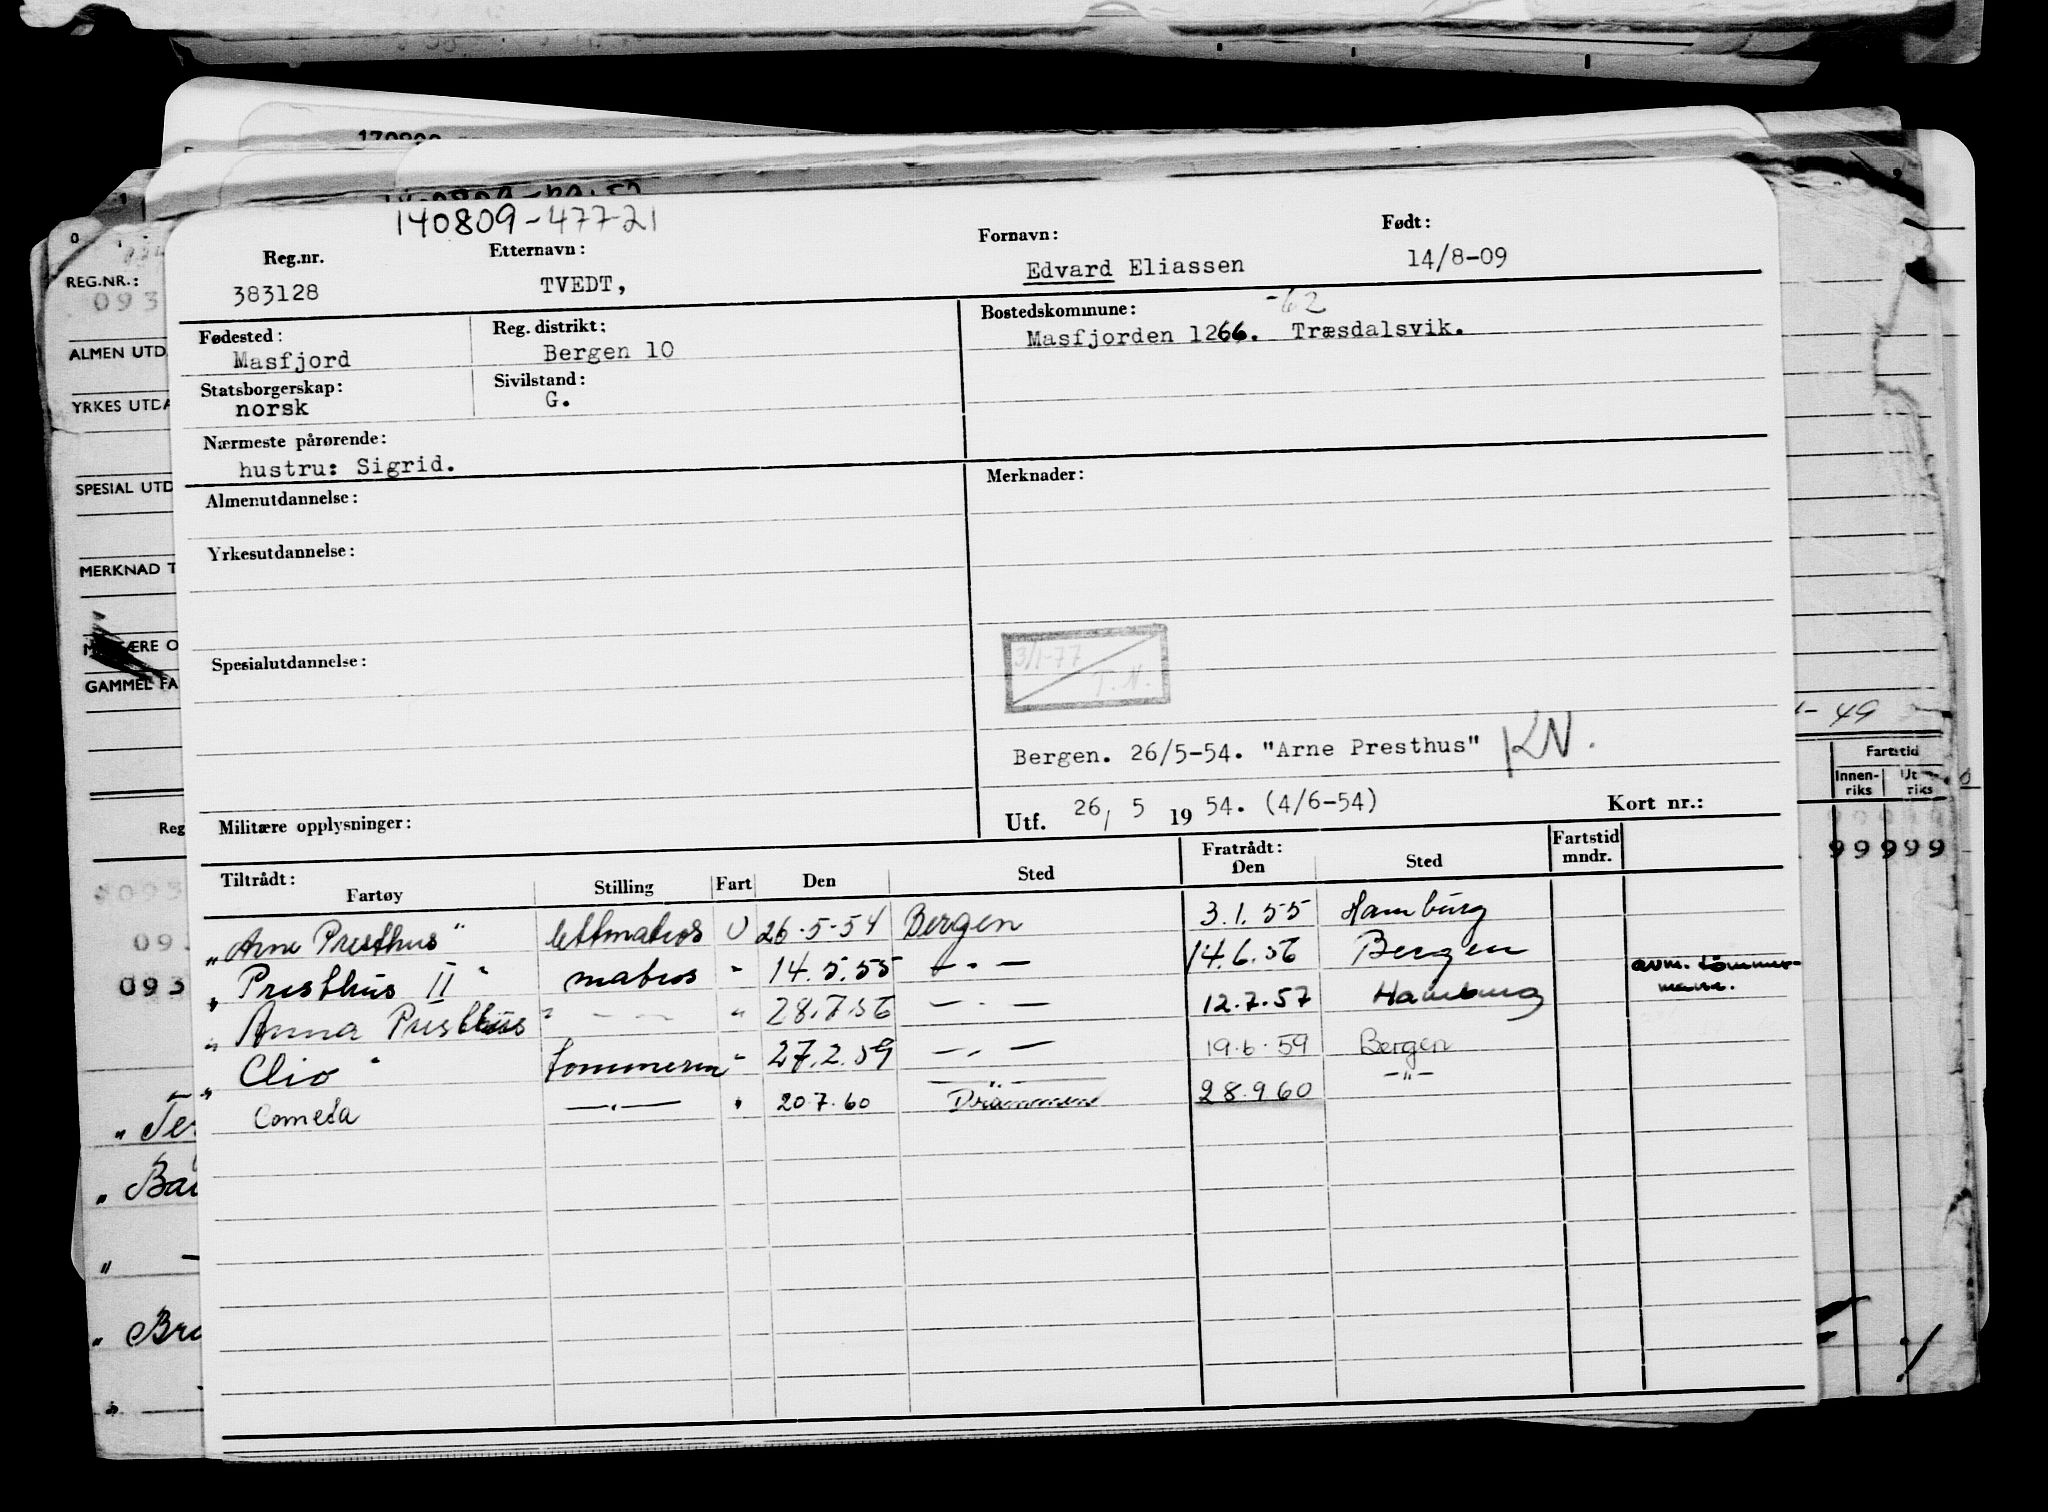 170809
140809-47721
Reg.nr. Etternavn: Fornavn: Født:
383128 TVEDT, Edvard Eliassen 14/8-09
Fødested: Reg. distrikt: Bostedskommune: -62
Masfjord Bergen 10 Masfjorden 1266. Træsdalsvik.
Statsborgerskap: Sivilstand:
norsk G.
Nærmeste pårørende:
hustru: Sigrid.
Almenutdannelse: Merknader:
Yrkesutdannelse:
Spesialutdannelse:
3/1-77
T.N.
Bergen. 26/5-54. "Arne Presthus" KN.
Militære opplysninger: Utf. 26, 5 19 54. (4/6-54) Kort nr.:
Tiltrådt: Fratrådt: Fartstid
Fartøy Stilling Fart Den Sted Den Sted mndr.
"Arne Presthus" lettmatros U 26.5.54 Bergen 3.1.55 Hamburg
" Presthus II " matros " 14.5.55 — . — 14.6.56 Bergen
" Anna Presthus " — — " 28.7.56 — . — 12.7.57 Hamburg avm. tømmermann.
" Clio " tømmerm " 27.2.59 — . — 19.6.59 Bergen
" Cometa — . — " 20.7.60 Drammen 28.9.60 — " —
REG.NR.:
093
ALMEN UTD
YRKES UTDA
SPESIAL UTD
MERKNAD T
ÆRE O
GAMMEL FA
Reg
093
093
093
- 49
Fartstid
Innenriks Utriks
99999